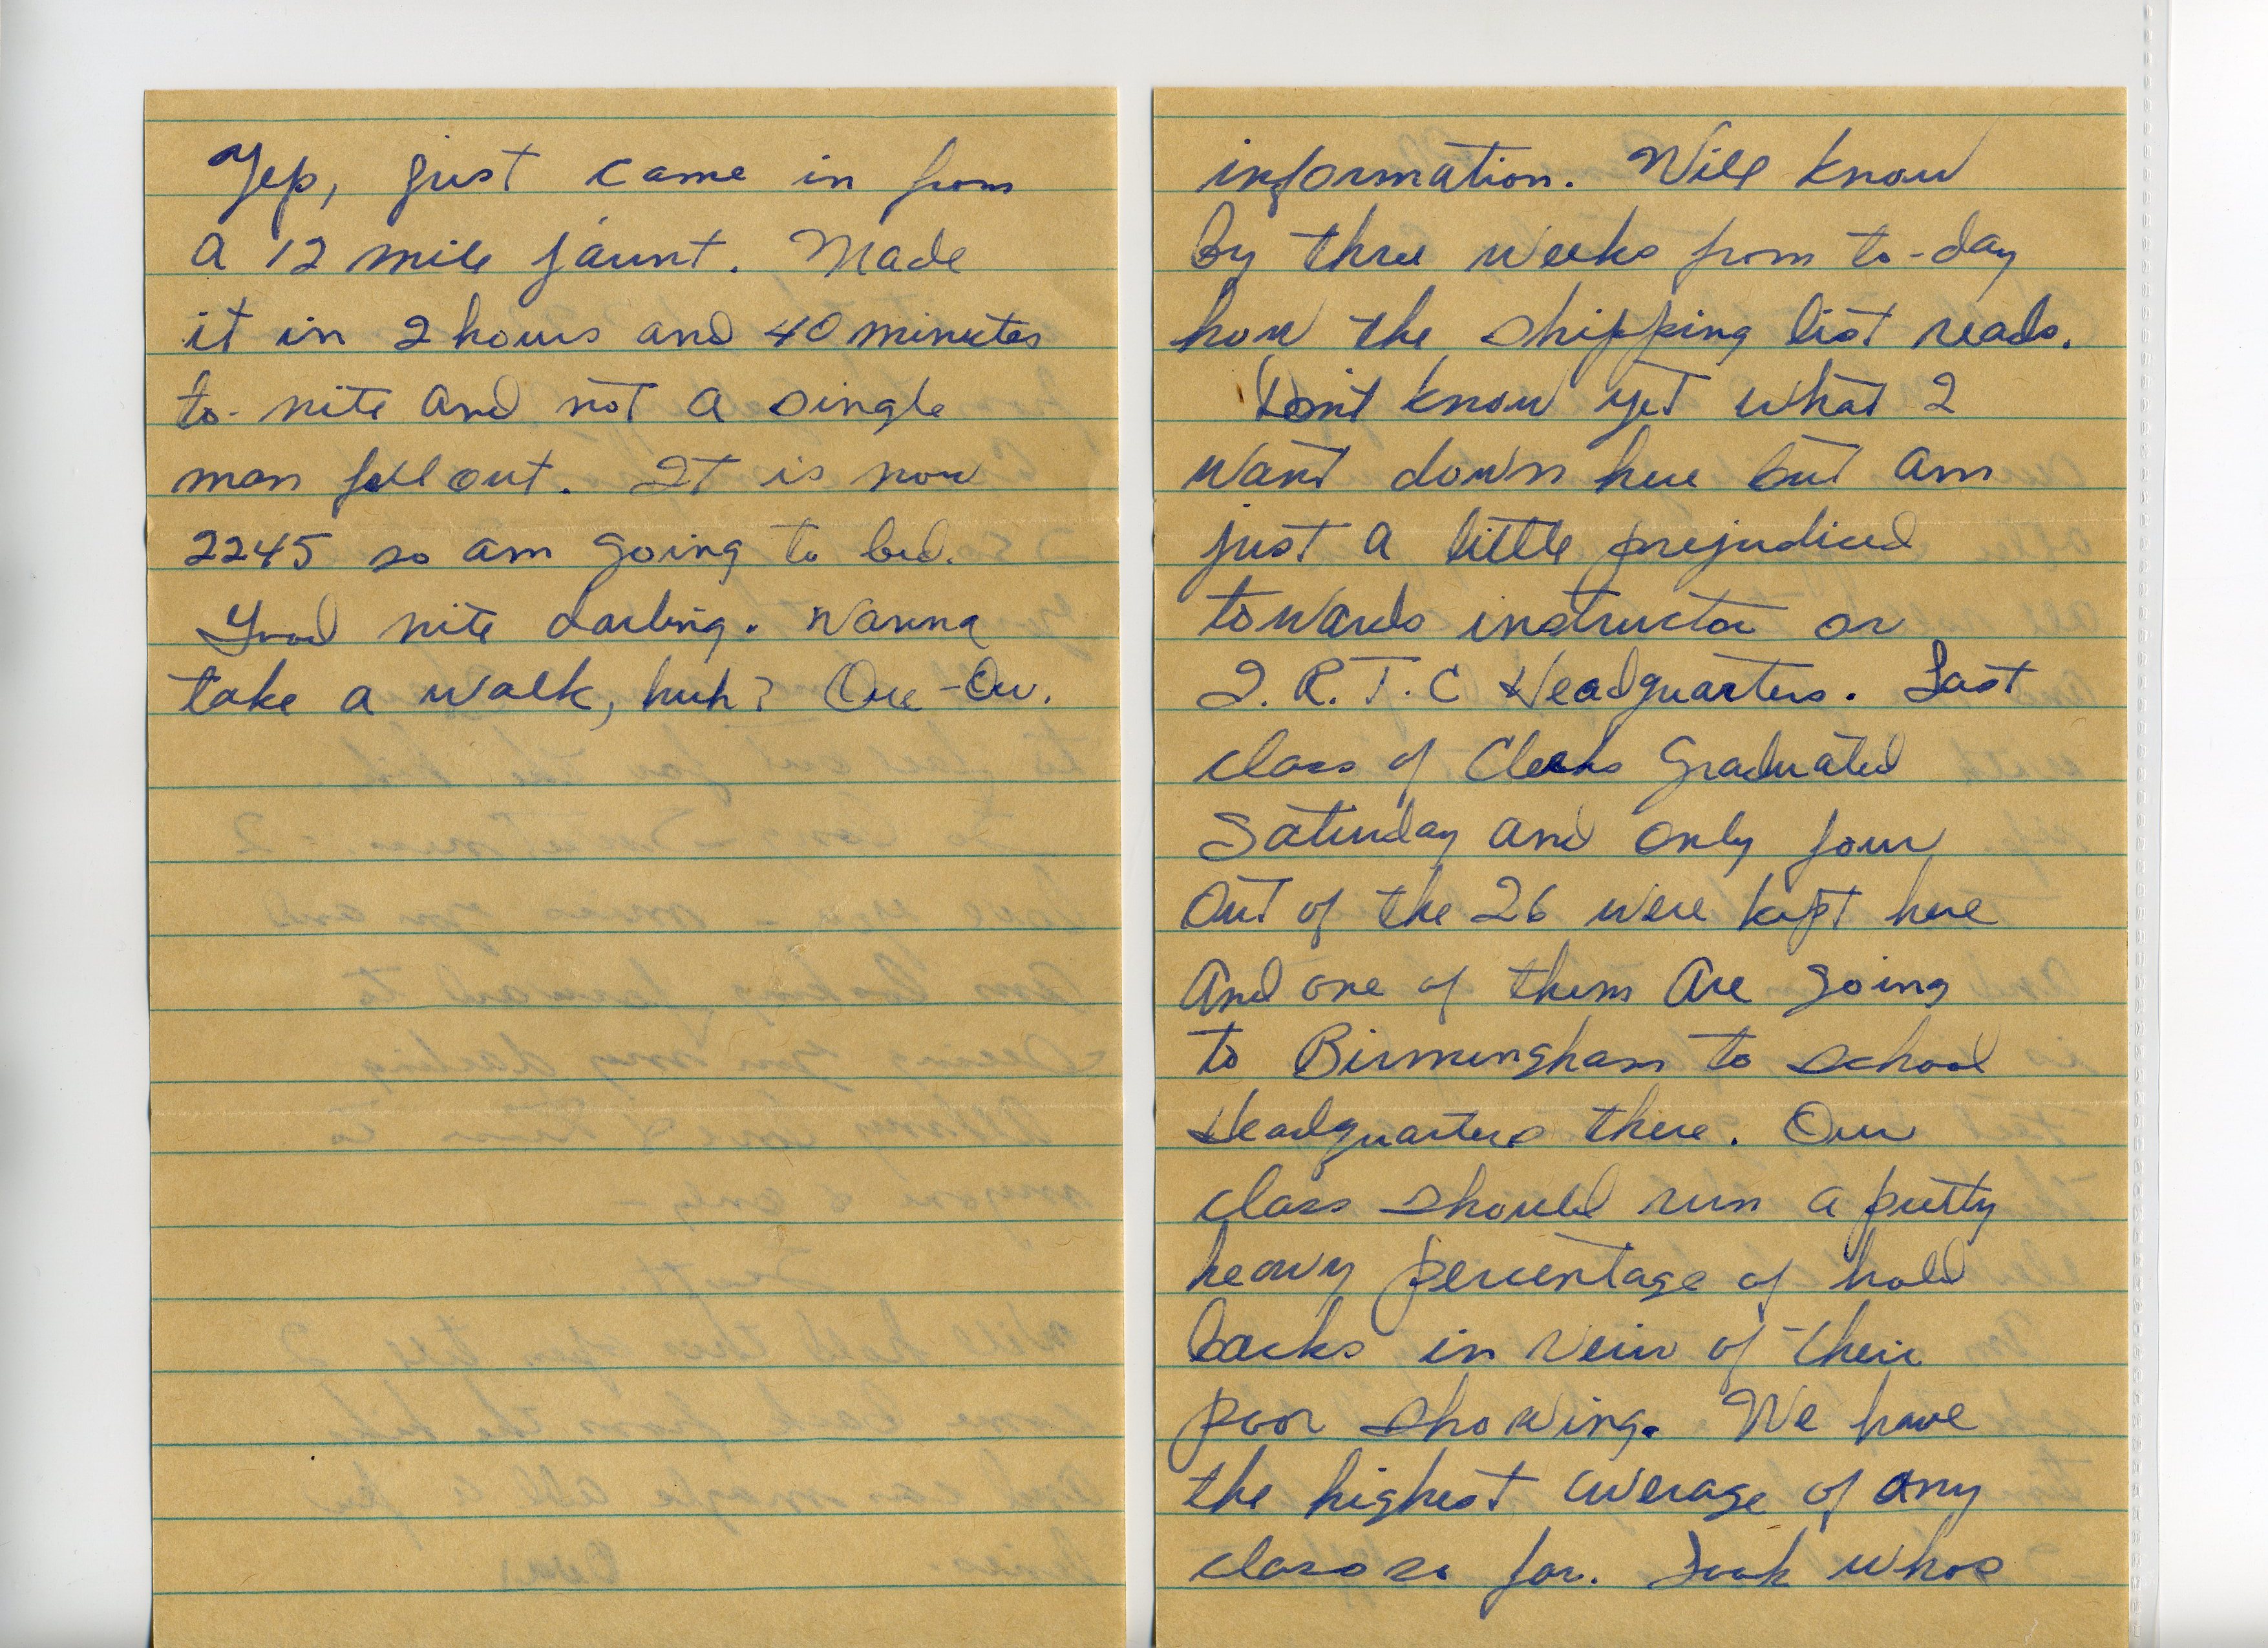 Yep, just came in from
a 12 mile jaunt. Made
it in 2 hours and 40 minutes
to-nite and not a single
man fell out. It is now
2245 so am going to bed.
Good nite darling. Wanna
take a walk, huh? Ow-Ow.
information. Will know
by three weeks from to-day
how the shipping list reads.
Don't know yet what I
want down here but am
just a little prejudiced
towards instructor or
I.R.T.C Headquarters. Last
class of Clerks Graduated
Saturday and only four
out of the 26 were kept here
And one of them are going
to Birmingham to school
Headquarters there. Our
class should run a pretty
heavy percentage of hold
backs in veiw of their
poor showing. We have
the highest average of any
class so far. Look whos